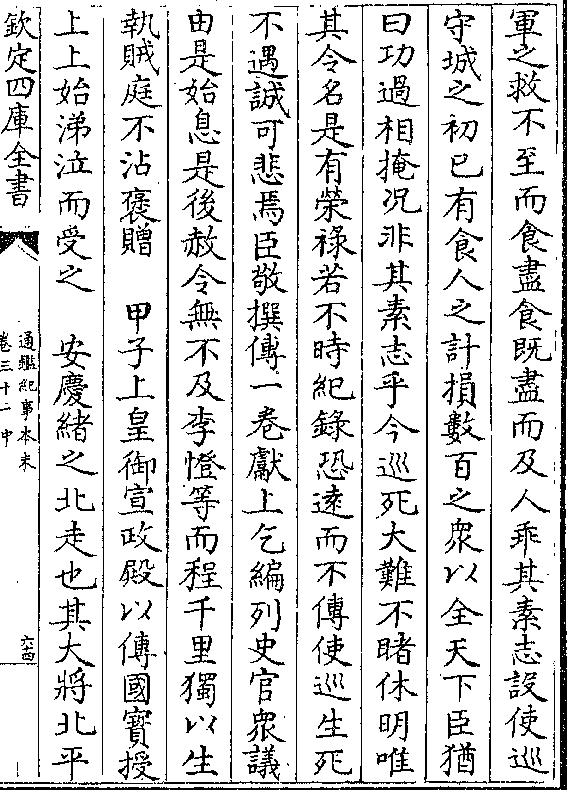 軍之救不至而食盡食既盡而及人乖其素志設使巡
守城之初已有食人之計損數百之衆以全天下臣猶
曰功過相掩况非其素志乎今巡死大難不睹休明唯
其令名是有榮祿若不時紀錄恐逺而不傳使巡生死
不遇誠可悲焉臣敬撰傳一卷獻上乞編列史官衆議
由是始息是後赦令無不及李憕等而程千里獨以生
執賊庭不沾褒贈　甲子上皇御宣政殿以傳國寳授
上上始涕泣而受之　安慶緒之北走也其大將北平
欽定四庫全書
通鑑紀事本末
卷三十一中
六四